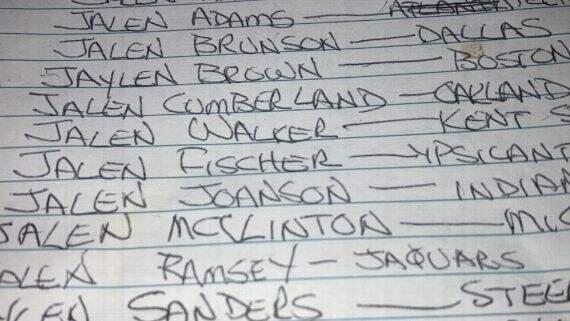 JALEN ADAMS —
JALEN BRUNSON — DALLAS
JAYLEN BROWN — BOSTON
JALEN CUMBERLAND — OAKLAND
JALEN WALKER — KENT S
JALEN FISCHER — YPSICANT
JALEN JOANSON — INDIAN
JALEN MCCLINTON — MIC
ALEN RAMSEY – JAQUARS
LEN SANDERS — STEE